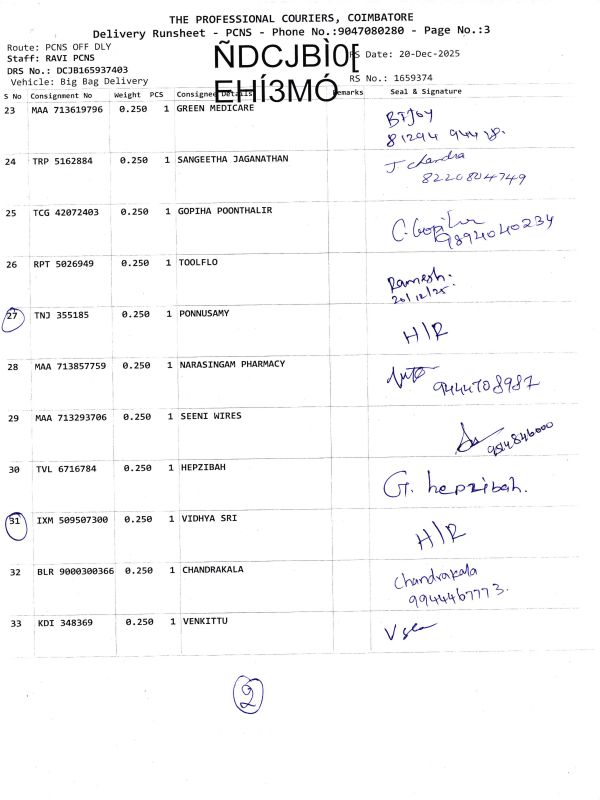 THE PROFESSIONAL COURIERS, COIMBATORE
Delivery Runsheet - PCNS - Phone No.:9047080280 - Page No.:3
Route: PCNS OFF DLY
Staff: RAVI PCNS
DRS No.: DCJB165937403
Vehicle: Big Bag Delivery
ÑDCJBÌ0[
EHÍ3MÓ
RS Date: 20-Dec-2025
RS No.: 1659374
S No Consignment No Weight PCS Consignee Details Remarks Seal & Signature
23 MAA 713619796 0.250 1 GREEN MEDICARE
24 TRP 5162884 0.250 1 SANGEETHA JAGANATHAN J chandra
8220804749
25 TCG 42072403 0.250 1 GOPIHA POONTHALIR
9894040234
26 RPT 5026949 0.250 1 TOOLFLO Ramesh.
20/12/25
27 TNJ 355185 0.250 1 PONNUSAMY H/R
28 MAA 713857759 0.250 1 NARASINGAM PHARMACY 9444708987
29 MAA 713293706 0.250 1 SEENI WIRES
30 TVL 6716784 0.250 1 HEPZIBAH G. hepzibah.
31 IXM 509507300 0.250 1 VIDHYA SRI H/R
32 BLR 9000300366 0.250 1 CHANDRAKALA Chandrakala
9944467773.
33 KDI 348369 0.250 1 VENKITTU
2